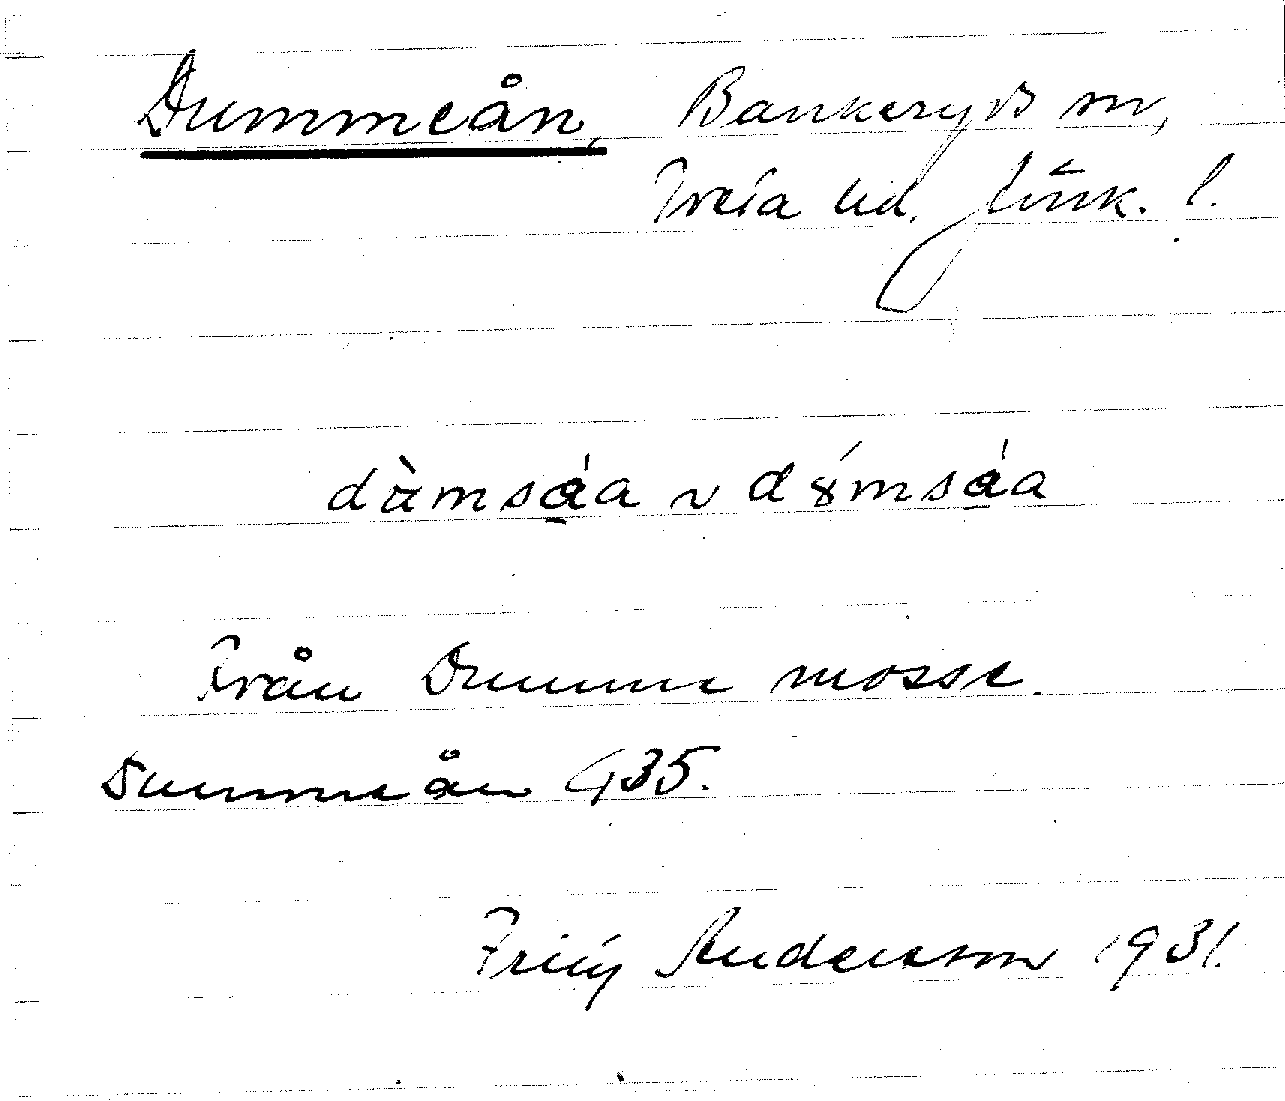 Dummeån, Bankeryds sn,
Tveta hd. Jönk. l.
dàmsá̱a ~ dɤ́msá̱a
Från Dumme mosse.
Dummeån G35.
Anderson 1931.